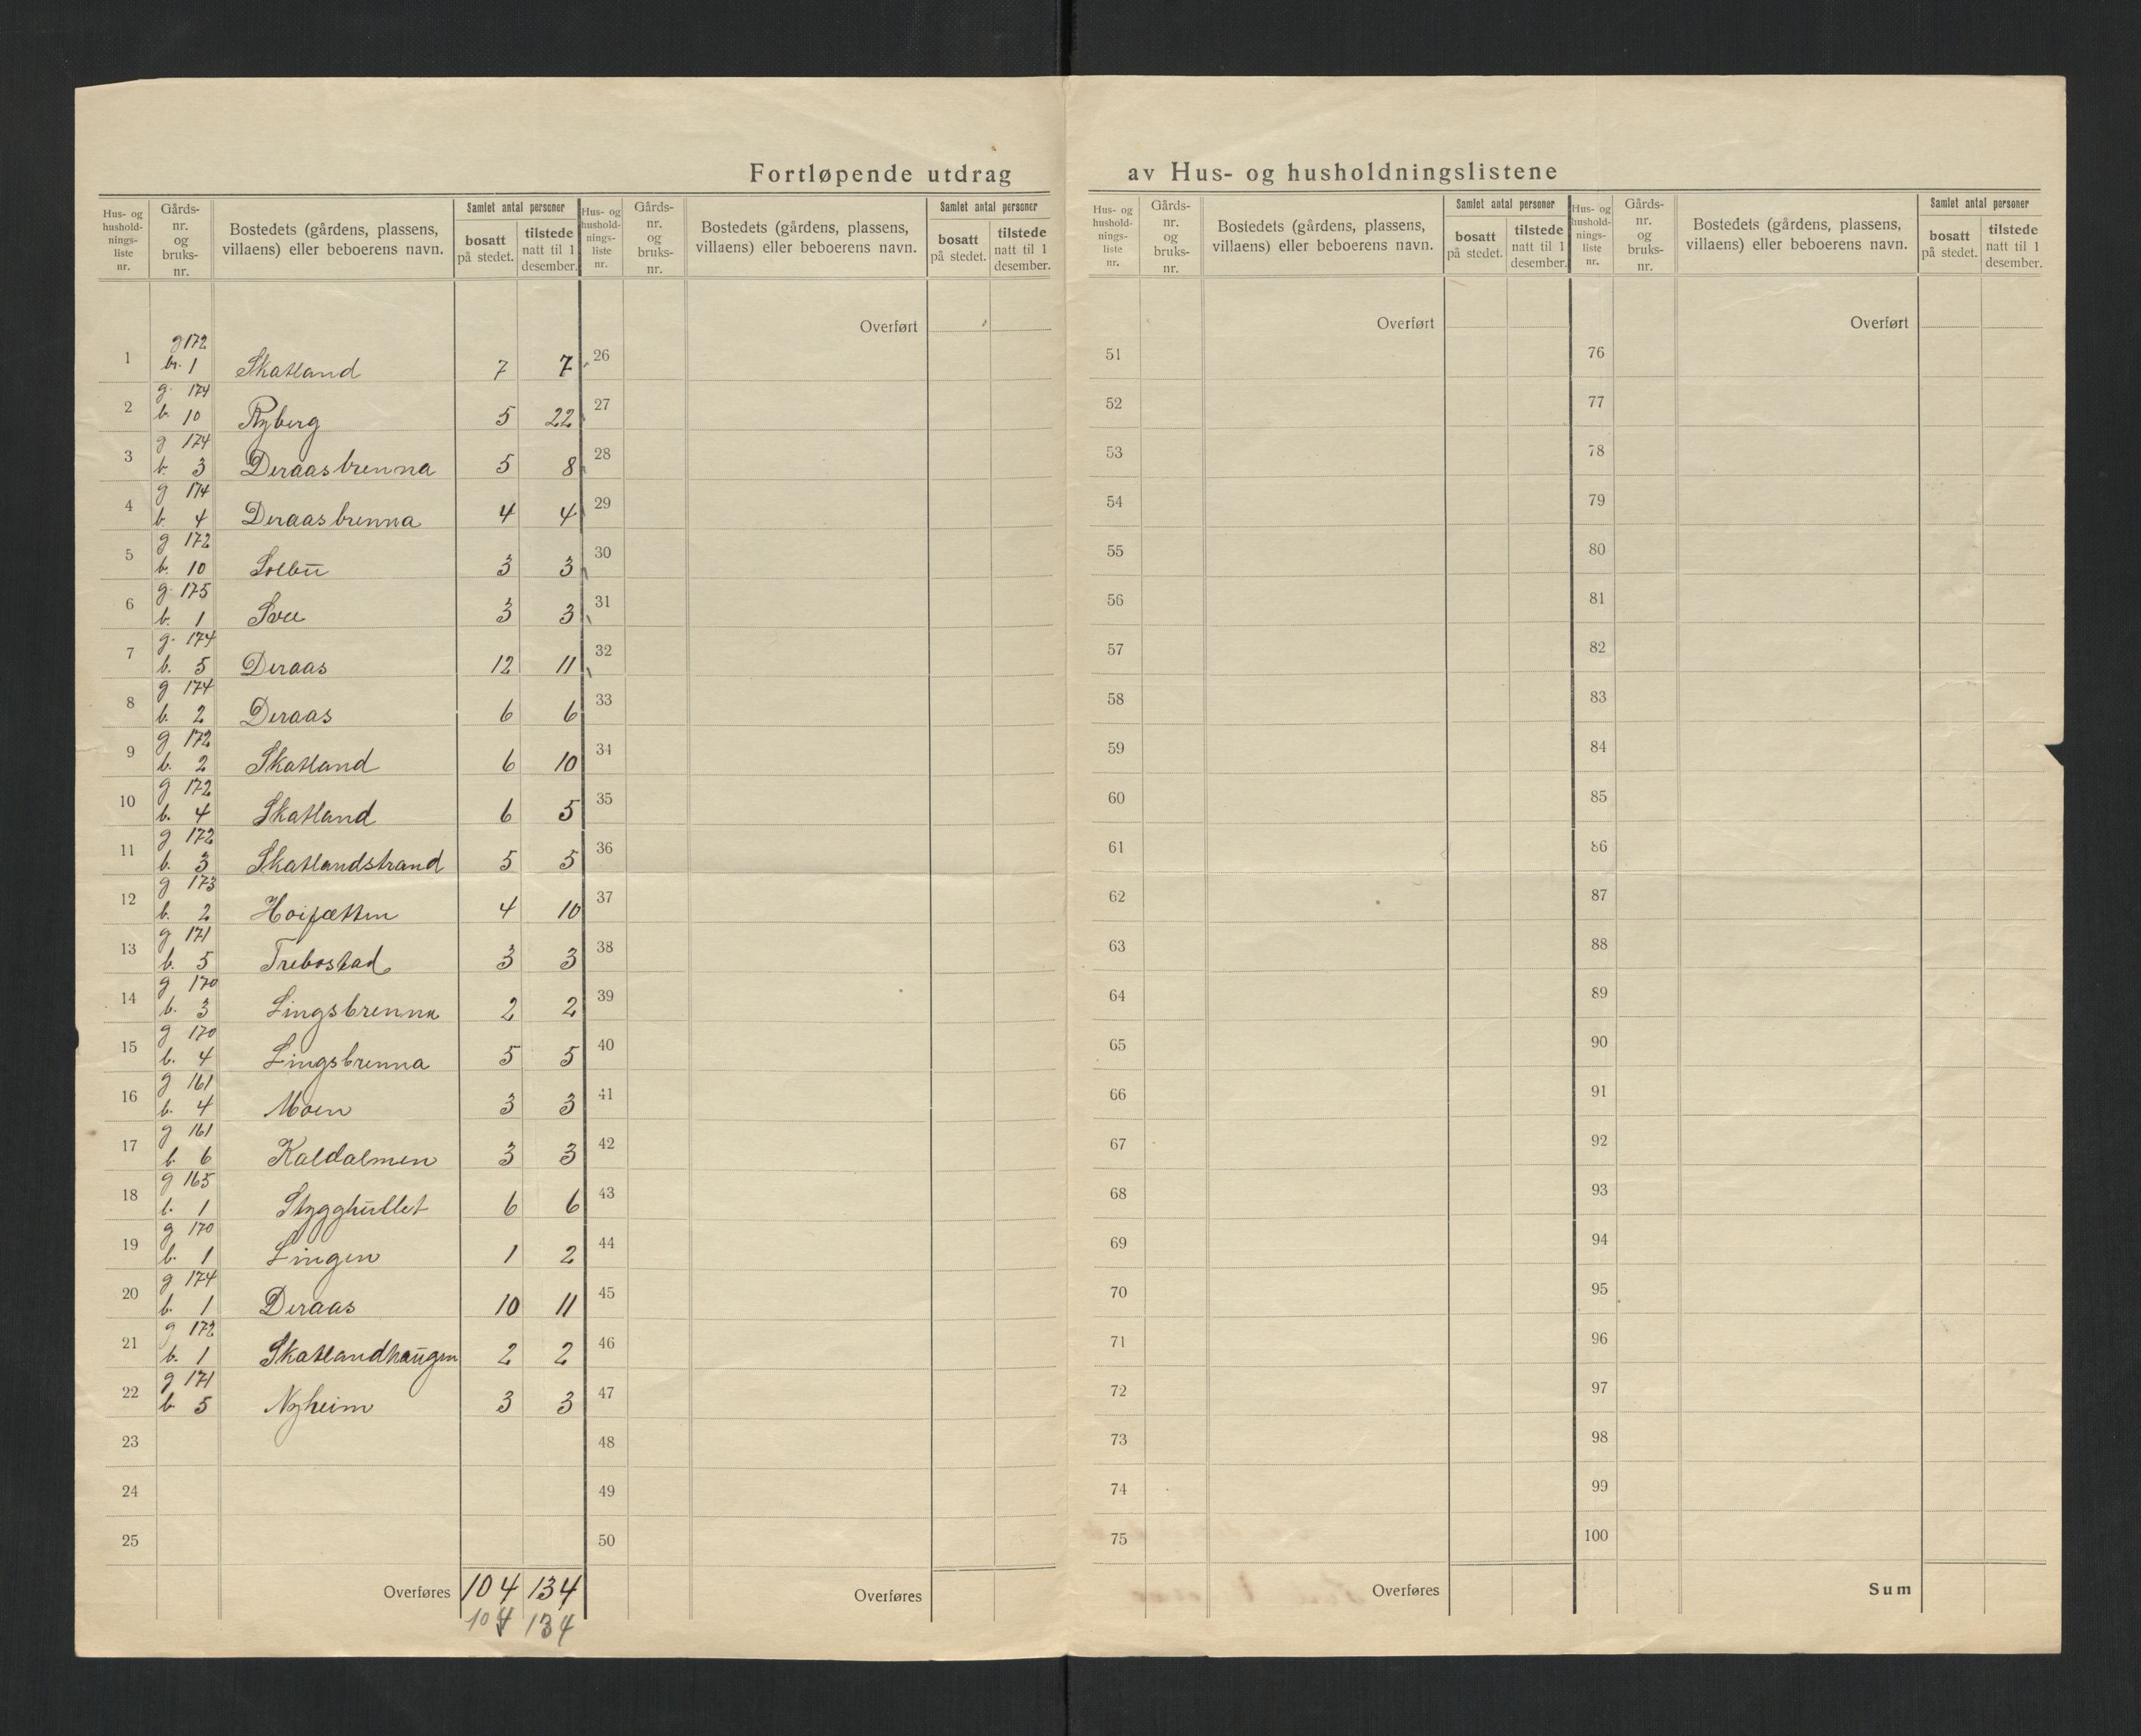 Fortløpende utdrag av Hus- og husholdningslistene
Hus- og hushold- nings- liste nr. | Gårds- nr. og bruks- nr. | Bostedets (gårdens, plassens, villaens) eller beboerens navn. | Samlet antal personer | bosatt på stedet. | tilstede natt til 1 desember.
1 g 172 br. 1 Skatland 7 7
2 g. 174 b. 10 Ryberg 5 22
3 g 174 b. 3 Deraasbrenna 5 8
4 g 174 b. 4 Deraasbrenna 4 4
5 g 172 b. 10 Solbu 3 3
6 g. 175 b. 1 Sve 3 3
7 g. 174 b. 5 Deraas 12 11
8 g 174 b. 2 Deraas 6 6
9 g 172 b. 2 Skatland 6 10
10 g 172 b. 4 Skatland 6 5
11 g 172 b. 3 Skatlandstrand 5 5
12 g 173 b. 2 Hoisætten 4 10
13 g 171 b. 5 Trebostad 3 3
14 g 170 b. 3 Lingsbrenna 2 2
15 g 170 b. 4 Lingsbrenna 5 5
16 g 161 b. 4 Moen 3 3
17 g 161 b. 6 Kaldalmen 3 3
18 g 165 b. 1 Stygghullet 6 6
19 g 170 b. 1 Lingen 1 2
20 g 174 b. 1 Deraas 10 11
21 g 172 b. 1 Skatlandhaugen 2 2
22 g 171 b. 5 Nyheim 3 3
23
24
25
Overføres 104 134
104 134
Hus- og hushold- nings- liste nr. | Gårds- nr. og bruks- nr. | Bostedets (gårdens, plassens, villaens) eller beboerens navn. | Samlet antal personer | bosatt på stedet. | tilstede natt til 1 desember.
Overført
26
27
28
29
30
31
32
33
34
35
36
37
38
39
40
41
42
43
44
45
46
47
48
49
50
Overføres
Hus- og hushold- nings- liste nr. | Gårds- nr. og bruks- nr. | Bostedets (gårdens, plassens, villaens) eller beboerens navn. | Samlet antal personer | bosatt på stedet. | tilstede natt til 1 desember.
Overført
51
52
53
54
55
56
57
58
59
60
61
62
63
64
65
66
67
68
69
70
71
72
73
74
75
Overføres
Hus- og hushold- nings- liste nr. | Gårds- nr. og bruks- nr. | Bostedets (gårdens, plassens, villaens) eller beboerens navn. | Samlet antal personer | bosatt på stedet. | tilstede natt til 1 desember.
Overført
76
77
78
79
80
81
82
83
84
85
86
87
88
89
90
91
92
93
94
95
96
97
98
99
100
Sum